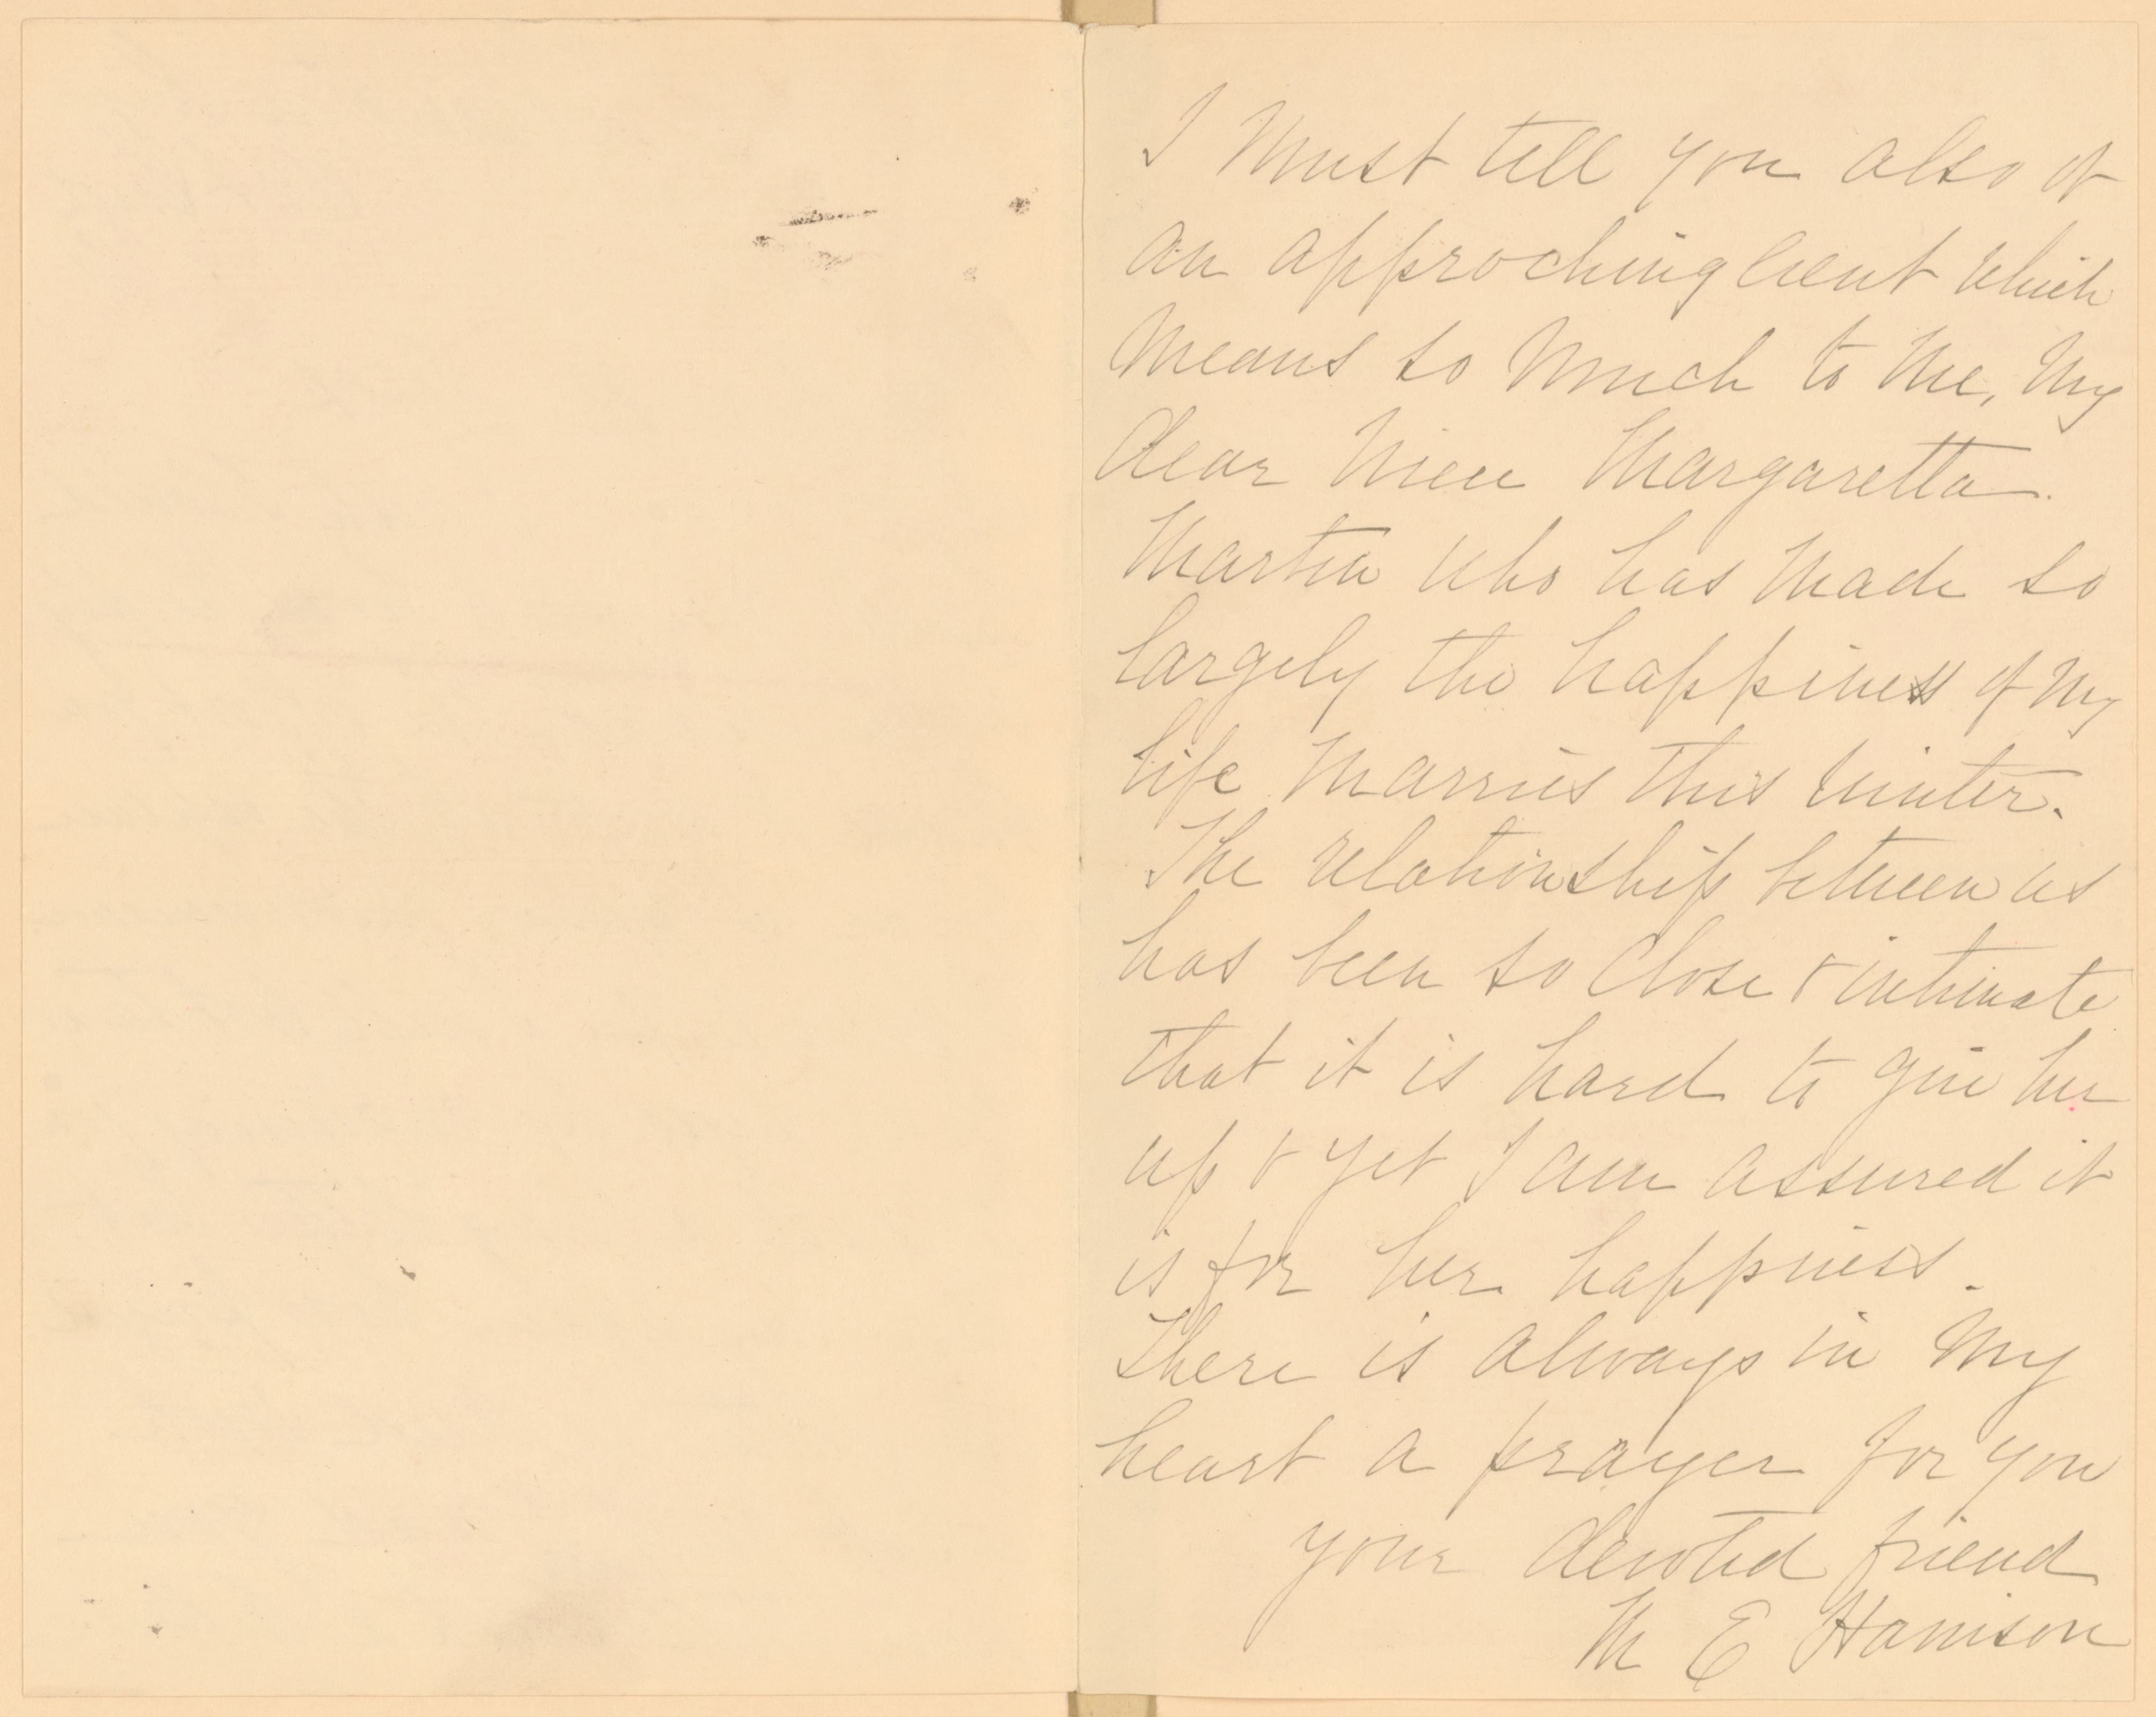 I must tell you also of
an approching event which
means so much to me, my
dear niece Margaretta.
Martin who has made so
largely the happiness of my
life marries this winter.
The relationship between us
has been so close & intimate
that it is hard to give her
up & yet I am assured it
is for her happiness.
There is always in my
heart a prayer for you
your devoted friend
M E Harrison